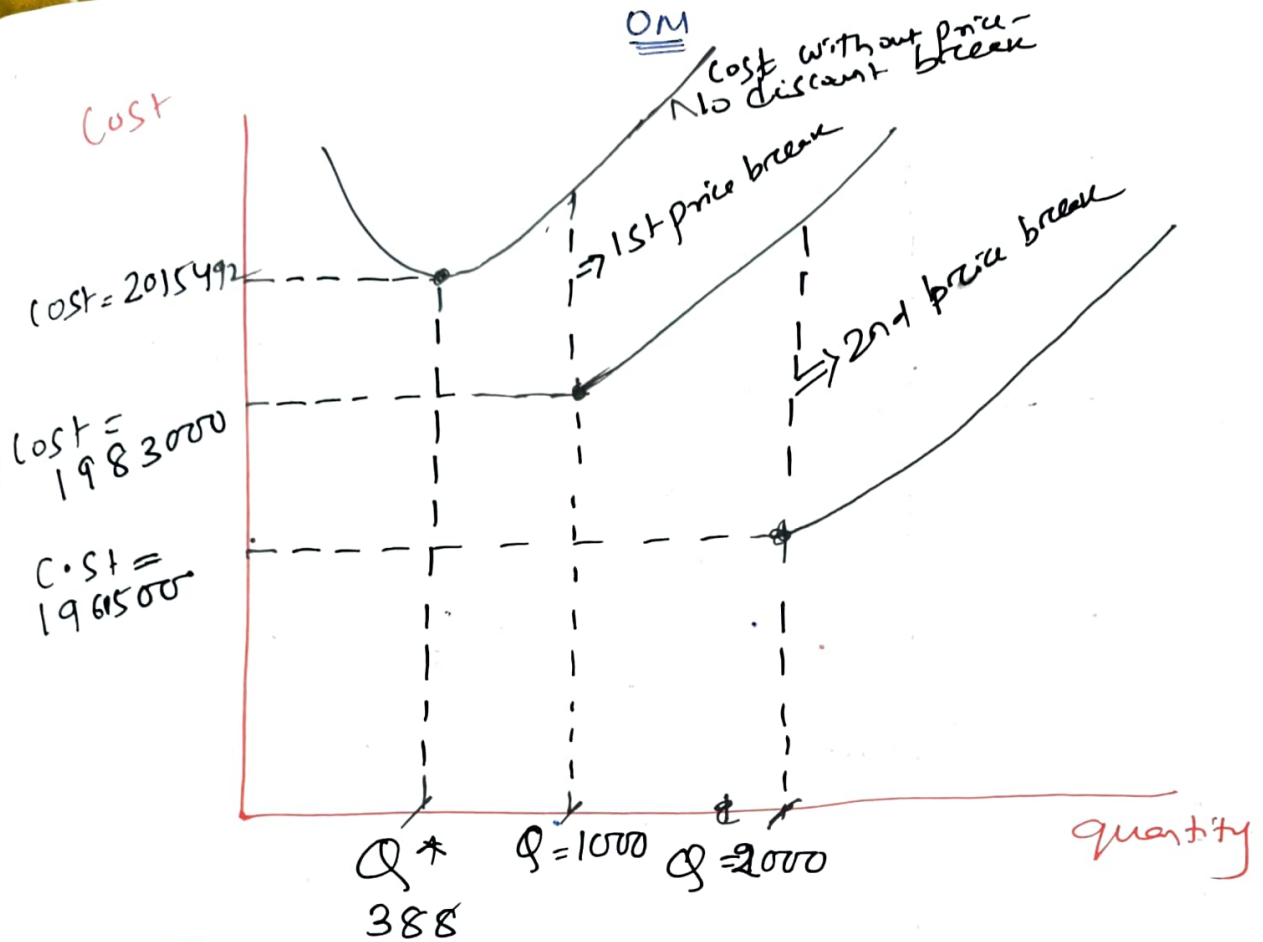 OM
Cost without price-
break
No discount
Cost
⇒ 1st price break
⇒ 2nd price break
Cost = 2015492
Cost =
1983000
Cost =
1961500
Q*
388
Q=1000
Q=2000
quantity